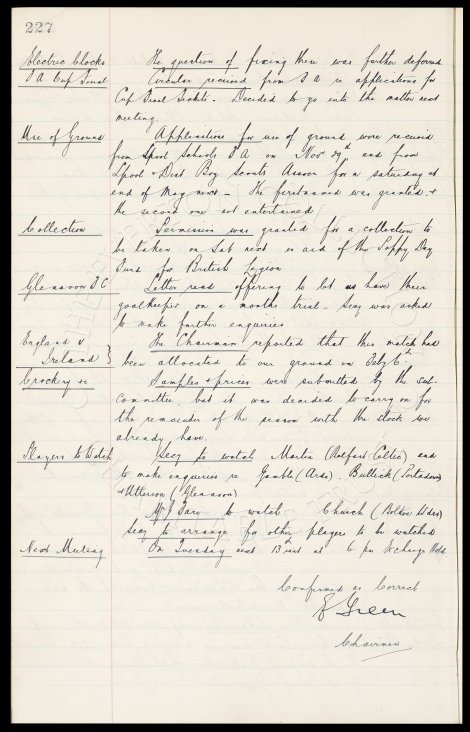 227
Electric Clocks The question of fixing these was further deferred.
F A Cup Final Circular received from F A re applications for
Cup Final Tickets. Decided to go into the matter next
meeting.
Use of Ground Applications for use of ground were received
from L'pool Schools F A on Novr 29th and from
L'pool & Dist Boy Scouts Assocn for a saturday at
end of May next. The firstnamed was granted &
the second one not entertained
Collection Permission was granted for a collection to
be taken on Sat next in aid of the Poppy Day
Fund for British Legion
Glenavon F C Letter read offering to let us have their
goalkeeper on a months trial. Secy was asked
to make further enquiries
England v
Ireland } The Chairman reported that this match had
been allocated to our ground on Feby 6th
Crockery &c Samples & prices were submitted by the sub
Committee, but it was decided to carry on for
the remainder of the season with the stock we
already have.
Players to Watch Secy to watch Martin (Belfast Celtic) and
to make enquiries re Gamble (Ards). Bullick (Portadown)
& (Glenavon)
Mr to watch Church (Bolden
Secy to arrange for other players to be watched
Next Meeting On Tuesday next 13 inst at 6 pm Exchange Hotel
Confirmed as Correct
E Green
Chairman